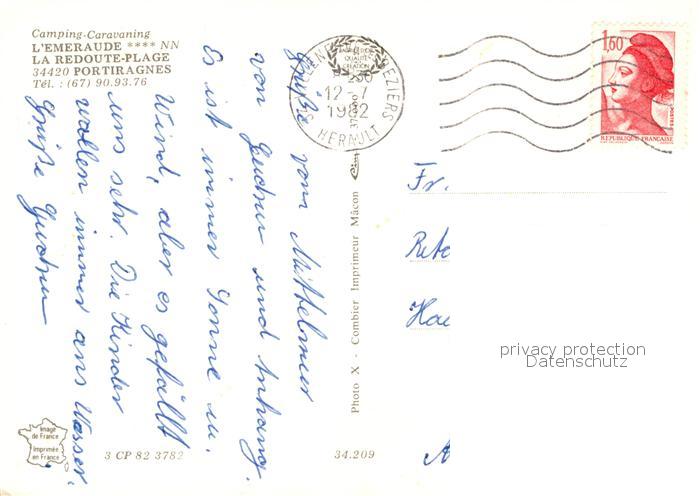 Camping-Caravaning
L'EMERAUDE **** NN
LA REDOUTE-PLAGE
34420 PORTIRAGNES
Tél. : (67) 90.93.76
Grüße vom Mittelmeer
von Gudrun und Anhang.
Es ist immer Sonne u.
Wind, aber es gefällt
uns sehr. Die Kinder
wollen immer ans Wasser.
Grüße Gudrun
12-7
1982
BEZIERS
HERAULT
1,60
POSTES
REPUBLIQUE FRANÇAISE
Fr.
Photo X - Combier Imprimeur Mâcon
privacy protection
Datenschutz
Image
de France
Imprimée
en France
3 CP 82 3782
34.209